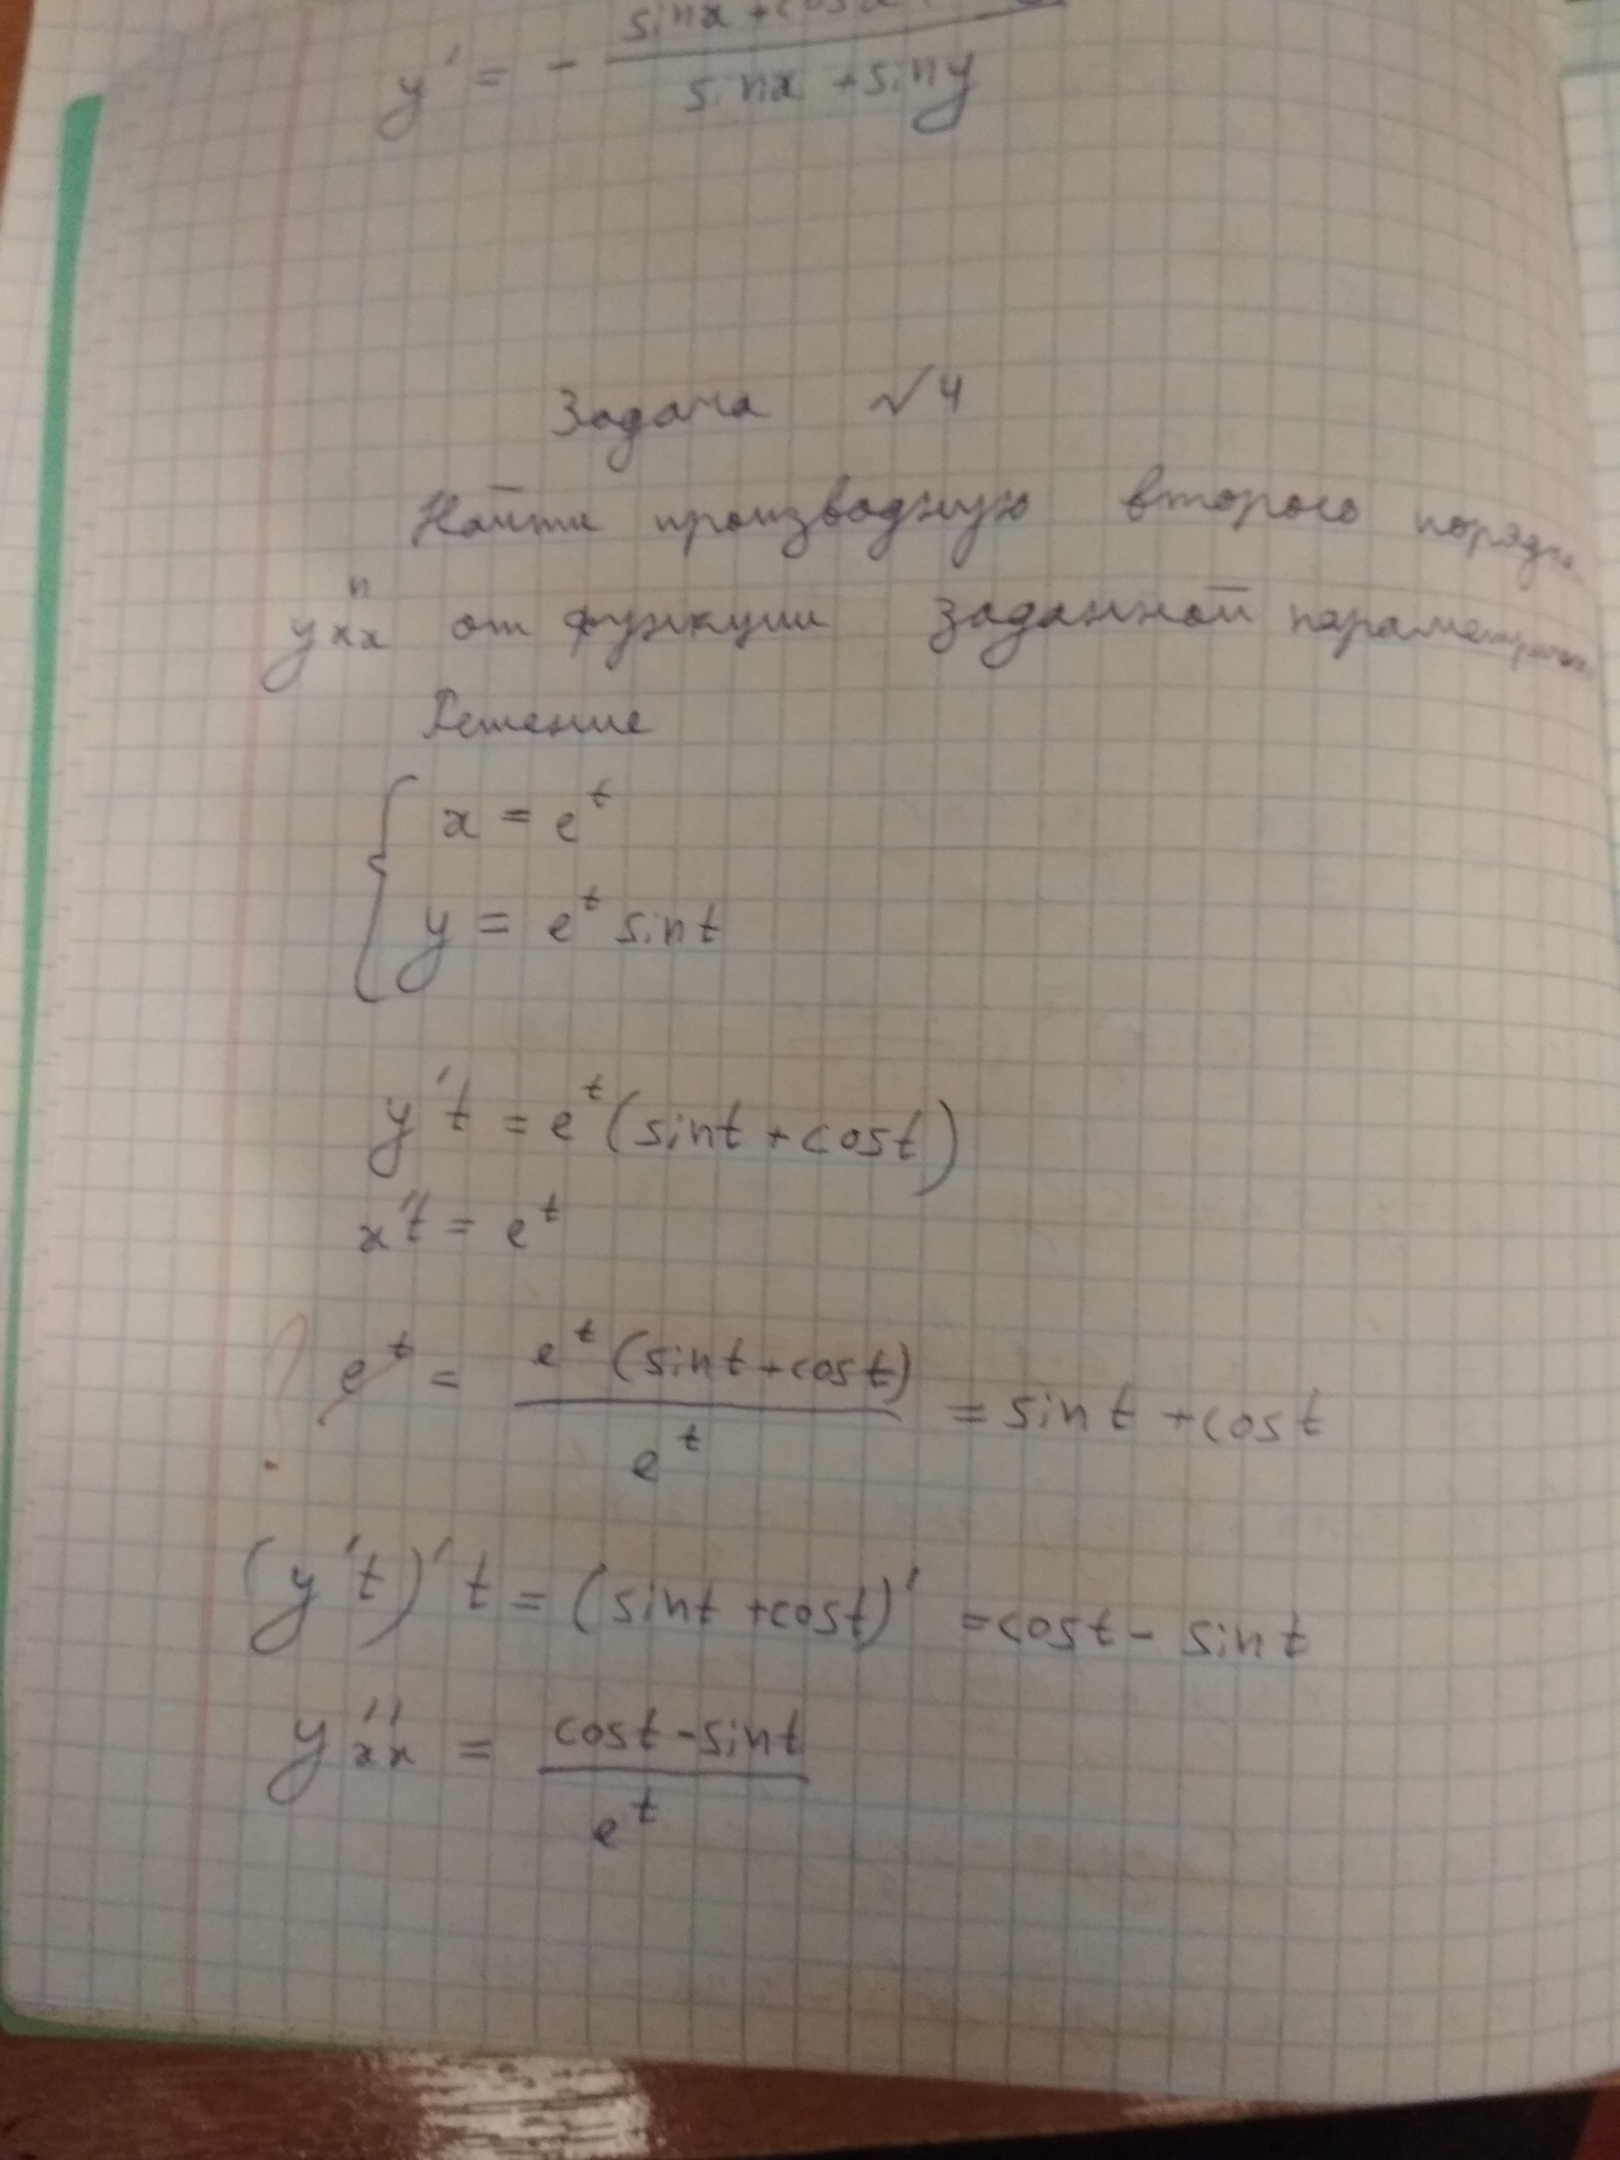 y' = - sinx + cosx / sinx + siny
Задача №4
Найти производную второго порядка
y''xx от функции заданной параметрически
Решение
{ x = e^t
y = e^t sint
y't = e^t (sint + cost)
x't = e^t
? e^t = e^t (sint + cost) / e^t = sint + cost
(y't)'t = (sint + cost)' = cost - sint
y''xx = cost - sint / e^t